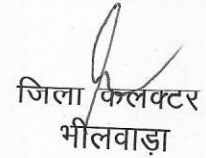 जिला कलेक्टर
भीलवाड़ा